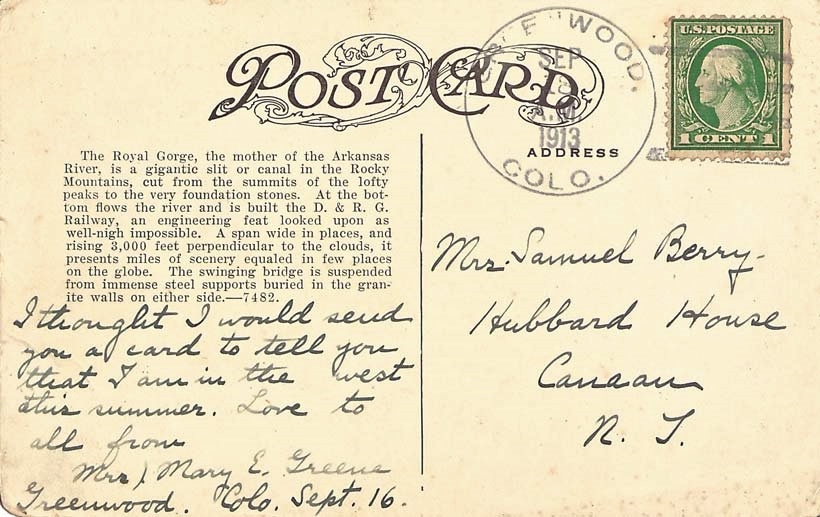 POST CARD
WOOD.
SEP
A.M.
1913
COLO.
U.S. POSTAGE
1 CENT 1
ADDRESS
The Royal Gorge, the mother of the Arkansas
River, is a gigantic slit or canal in the Rocky
Mountains, cut from the summits of the lofty
peaks to the very foundation stones. At the bot-
tom flows the river and is built the D. & R. G.
Railway, an engineering feat looked upon as
well-nigh impossible. A span wide in places, and
rising 3,000 feet perpendicular to the clouds, it
presents miles of scenery equaled in few places
on the globe. The swinging bridge is suspended
from immense steel supports buried in the gran-
ite walls on either side.—7482.
I thought I would send
you a card to tell you
that I am in the west
this summer. Love to
all from
Mrs. Mary E. Greene
Greenwood. Colo. Sept. 16.
Mrs. Samuel Berry.
Hubbard House
Canaan
N.